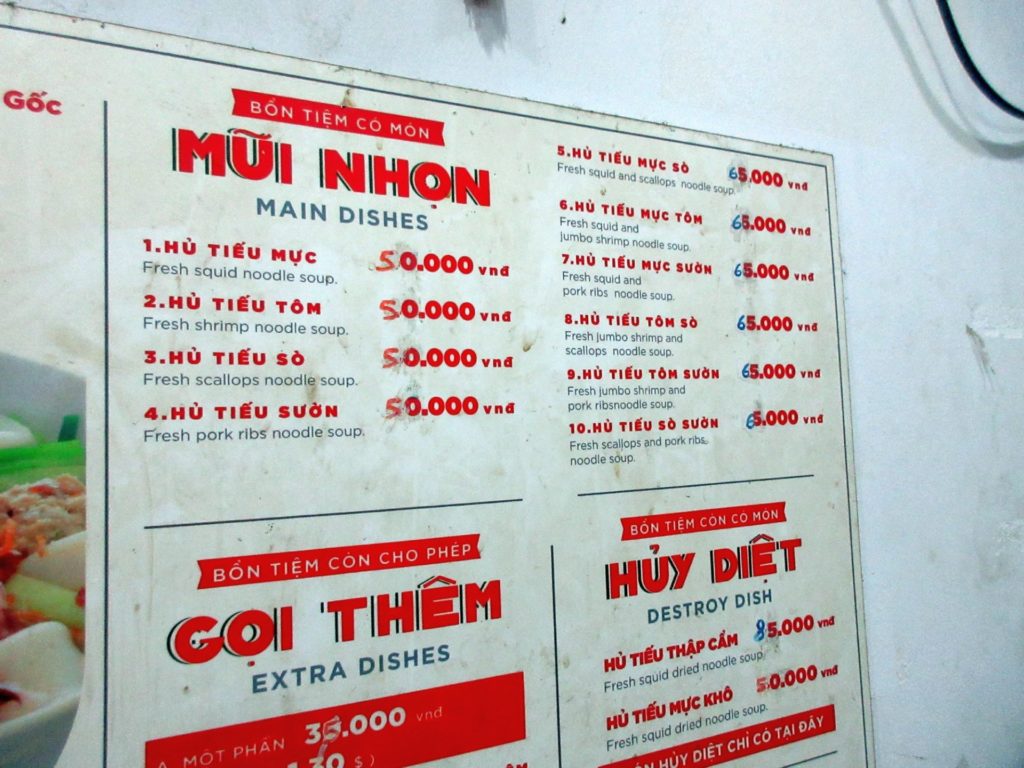 GỐC
BỔN TIỆM CÓ MÓN
MŨI NHỌN
MAIN DISHES
1.HỦ TIẾU MỰC 50.000 vnđ
Fresh squid noodle soup.
2.HỦ TIẾU TÔM 50.000 vnđ
Fresh shrimp noodle soup.
3.HỦ TIẾU SÒ 50.000 vnđ
Fresh scallops noodle soup.
4.HỦ TIẾU SƯỜN 50.000 vnđ
Fresh pork ribs noodle soup.
5.HỦ TIẾU MỰC SÒ 65.000 vnđ
Fresh squid and scallops noodle soup.
6.HỦ TIẾU MỰC TÔM 65.000 vnđ
Fresh squid and
jumbo shrimp noodle soup.
7.HỦ TIẾU MỰC SƯỜN 65.000 vnđ
Fresh squid and
pork ribs noodle soup.
8.HỦ TIẾU TÔM SÒ 65.000 vnđ
Fresh jumbo shrimp and
scallops noodle soup.
9.HỦ TIẾU TÔM SƯỜN 65.000 vnđ
Fresh jumbo shrimp and
pork ribsnoodle soup.
10.HỦ TIẾU SÒ SƯỜN 65.000 vnđ
Fresh scallops and pork ribs
noodle soup.
BỔN TIỆM CÒN CHO PHÉP
GỌI THÊM
EXTRA DISHES
MỘT PHẦN 35.000 vnđ
BỔN TIỆM CÒN CÓ MÓN
HỦY DIỆT
DESTROY DISH
HỦ TIẾU THẬP CẨM 85.000 vnđ
Fresh squid dried noodle soup
HỦ TIẾU MỰC KHÔ 50.000 vnđ
Fresh squid dried noodle soup.
HỦY DIỆT CHỈ CÓ TẠI ĐÂY